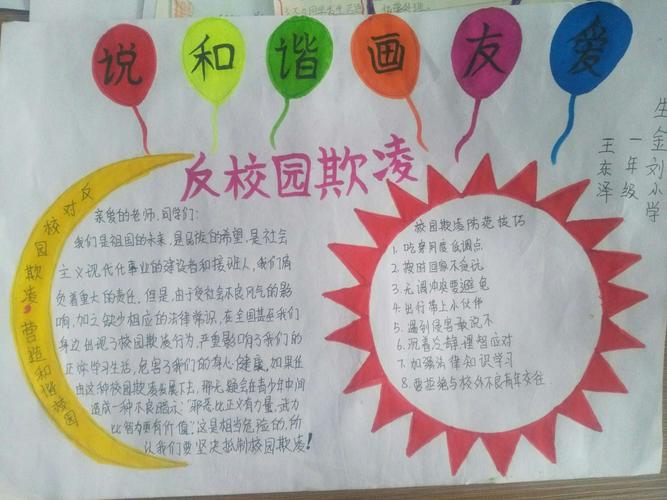 说和谐画友爱
反校园欺凌
生金刘小学
一年级
王东泽
反对校园欺凌,营造和谐校园
亲爱的老师、同学们:
我们是祖国的未来,是民族的希望,是社会
主义现代化事业的建设者和接班人,我们肩
负着重大的责任,但是,由于受社会不良风气的影
响,加之缺少相应的法律常识,在全国甚至我们
身边出现了校园欺凌行为,严重影响了我们的
正常学习生活,危害了我们的身心健康,如果任
由这种校园欺凌发展下去,那无疑会在青少年中间
造成一种不良暗示:“邪恶比正义有力量,武力
比智力更有价值”,这是相当危险的,所
以我们要坚决抵制校园欺凌!
校园欺凌防范技巧
1.吃穿用度低调点
2.按时回家不贪玩
3.无谓冲突要避免
4.出行带上小伙伴
5.遇到侵害敢说不
6.沉着冷静理智应对
7.加强法律知识学习
8.要拒绝与校外不良青年交往